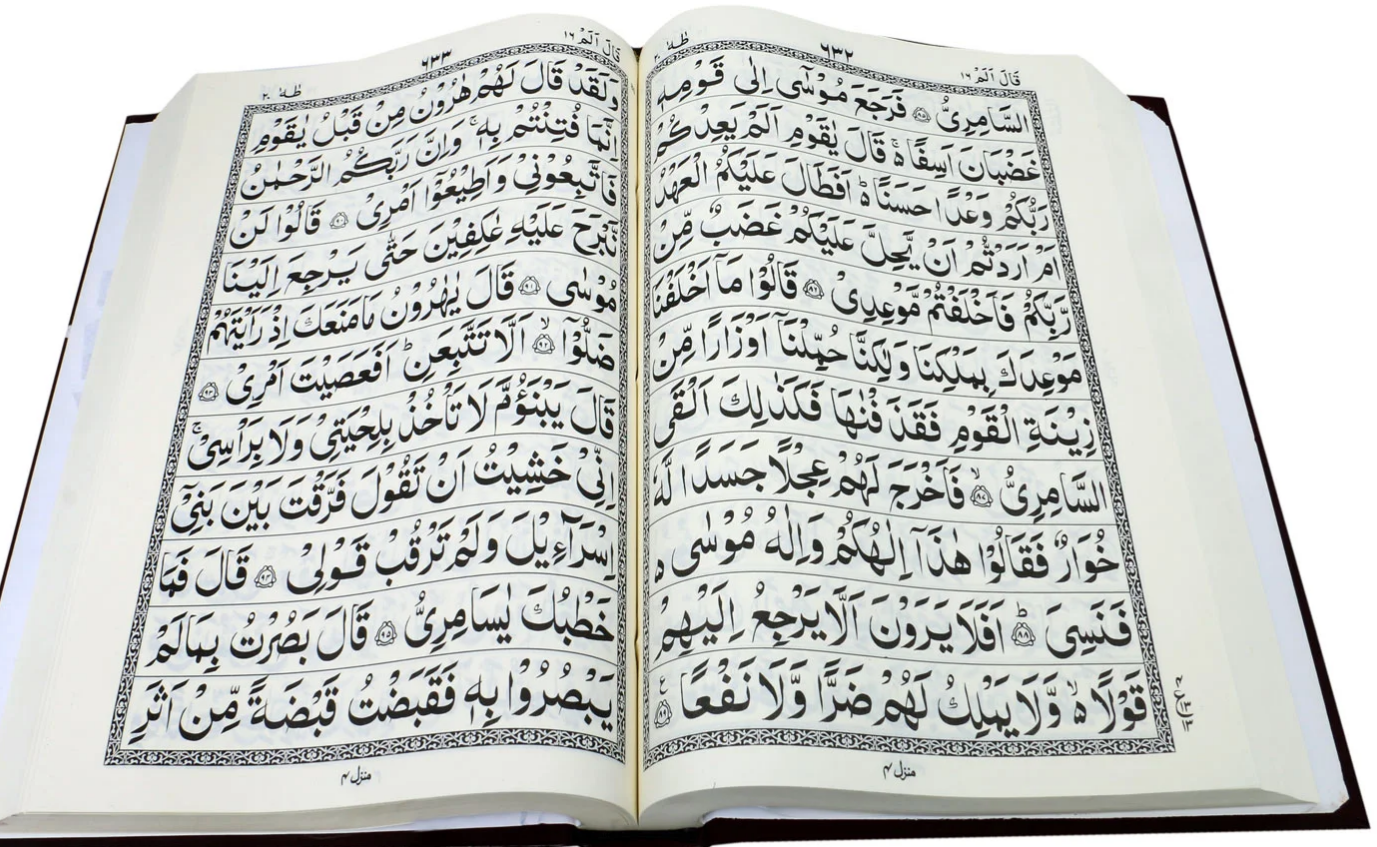 قَالَ اَلَمْ ۱۶ ۶۳۲ طٰهٰ ۲۰
السَّامِرِيُّ ۝۸۵ فَرَجَعَ مُوْسٰۤى اِلٰى قَوْمِهٖ
غَضْبَانَ اَسِفًا ۬ۚ قَالَ يٰقَوْمِ اَلَمْ يَعِدْكُمْ
رَبُّكُمْ وَعْدًا حَسَنًا ۬ؕ اَفَطَالَ عَلَيْكُمُ الْعَهْدُ
اَمْ اَرَدْتُّمْ اَنْ يَّحِلَّ عَلَيْكُمْ غَضَبٌ مِّنْ
رَّبِّكُمْ فَاَخْلَفْتُمْ مَّوْعِدِیْ ۝۸۶ قَالُوْا مَاۤ اَخْلَفْنَا
مَوْعِدَكَ بِمَلْكِنَا وَلٰكِنَّا حُمِّلْنَاۤ اَوْزَارًا مِّنْ
زِيْنَةِ الْقَوْمِ فَقَذَفْنٰهَا فَكَذٰلِكَ اَلْقَى
السَّامِرِيُّ ۝۸۷ۙ فَاَخْرَجَ لَهُمْ عِجْلًا جَسَدًا لَّهٗ
خُوَارٌ فَقَالُوْا هٰذَاۤ اِلٰهُكُمْ وَاِلٰهُ مُوْسٰى ۬
فَنَسِیَ ۝۸۸ؕ اَفَلَا يَرَوْنَ اَلَّا يَرْجِعُ اِلَيْهِمْ
قَوْلًا ۬ۙ وَّلَا يَمْلِكُ لَهُمْ ضَرًّا وَّلَا نَفْعًا ۝۸۹
منزل ۴
قَالَ اَلَمْ ۱۶ ۶۳۳ طٰهٰ ۲۰
وَلَقَدْ قَالَ لَهُمْ هٰرُوْنُ مِنْ قَبْلُ يٰقَوْمِ
اِنَّمَا فُتِنْتُمْ بِهٖ ۚ وَاِنَّ رَبَّكُمُ الرَّحْمٰنُ
فَاتَّبِعُوْنِیْ وَاَطِيْعُوْۤا اَمْرِیْ ۝۹۰ قَالُوْا لَنْ
نَّبْرَحَ عَلَيْهِ عٰكِفِيْنَ حَتّٰى يَرْجِعَ اِلَيْنَا
مُوْسٰى ۝۹۱ قَالَ يٰهٰرُوْنُ مَا مَنَعَكَ اِذْ رَاَيْتَهُمْ
ضَلُّوْۤا ۝۹۲ۙ اَلَّا تَتَّبِعَنِ ؕ اَفَعَصَيْتَ اَمْرِیْ ۝۹۳
قَالَ يَبْنَؤُمَّ لَا تَاْخُذْ بِلِحْيَتِیْ وَلَا بِرَاْسِیْ ۚ
اِنِّیْ خَشِيْتُ اَنْ تَقُوْلَ فَرَّقْتَ بَيْنَ بَنِیْۤ
اِسْرَآءِيْلَ وَلَمْ تَرْقُبْ قَوْلِیْ ۝۹۴ قَالَ فَمَا
خَطْبُكَ يٰسَامِرِيُّ ۝۹۵ قَالَ بَصُرْتُ بِمَا لَمْ
يَبْصُرُوْا بِهٖ فَقَبَضْتُ قَبْضَةً مِّنْ اَثَرِ
منزل ۴